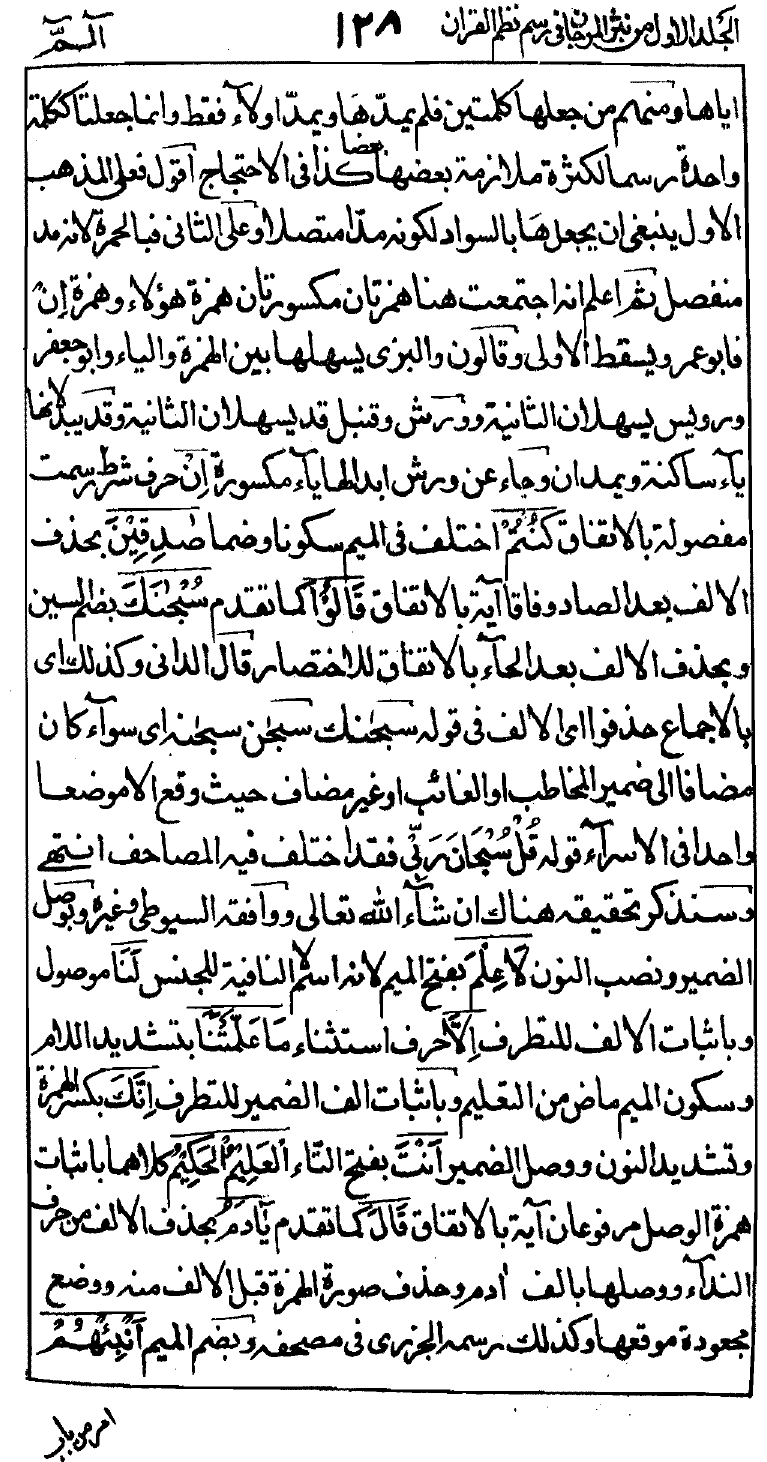 الجلد الاول من نثر المرجان في رسم نظم القران ١٢٨ آلـمّ
اياها ومنهم من جعلها كلمتين فلم يمدّ هَا ويمدّ اولآء فقط وانما جعلتا ككلمة
واحدة رسما لكثرة ملازمة بعضها بعضا كذا فى الاحتجاج اقول فعلى المذهب
الاول ينبغى ان يجعل هَا بالسواد لكونه مدّا متصلا وعلى الثانى فبالحمرة لانه مد
منفصل ثم اعلم انه اجتمعت هنا همزتان مكسورتان همزة هؤلاء وهمزة اِنْ
فابو عمر ويسقط الاولى وقالون والبزى يسهلها بين الهمزة والياء وابو جعفر
ورويس يسهلان الثانية وورش وقنبل قد يسهلان الثانية وقد يبدلانها
يآء ساكنة ويمدان وجاء عن ورش ابدالها يآء مكسورة اِنْ حرف شرط رسمت
مفصولة بالاتفاق كُنْتُمْ اختلف فى الميم سكونا وضما صٰدِقِيْنَ بحذف
الالف بعد الصاد وفاقا آية بالاتفاق قَالُوْا كما تقدم سُبْحٰنَكَ بضم السين
وبحذف الالف بعد الحآء بالاتفاق للاختصار قال الدانى وكذلك اى
بالاجماع حذفوا اى الالف فى قوله سبحٰنك سبحٰن سبحٰنه اى سوآء كان
مضافا الى ضمير المخاطب او الغائب او غير مضاف حيث وقع الا موضعا
واحدا فى الاسرآء قوله قُلْ سُبْحَانَ رَبِّى فقد اختلف فيه المصاحف انتهى
وسنذكر تحقيقه هناك ان شآء الله تعالى ووافقه السيوطى وغيره وبوصل
الضمير ونصب النون لَا عِلْمَ بفتح الميم لانه اسم لا النافية للجنس لَنَا موصول
وباثبات الالف للتطرف اِلَّا حرف استثناء مَا عَلَّمْتَنَا بتشديد اللام
وسكون الميم ماض من التعليم وباثبات الف الضمير للتطرف اِنَّكَ بكسر الهمزة
وتشديد النون ووصل الضمير اَنْتَ بفتح التّاء الْعَلِيْمُ الْحَكِيْمُ كلاهما باثبات
همزة الوصل مرفوعان آية بالاتفاق قَالَ كما تقدم يٰٓادَمُ بحذف الالف من حرف
الندآء ووصلها بالف ادم وحذف صورة الهمزة قبل الالف منه ووضع
مجعودة موقعها وكذلك رسمه الجزرى فى مصحفه وبضم الميم اَنْبِئْهُمْ
امر من باب